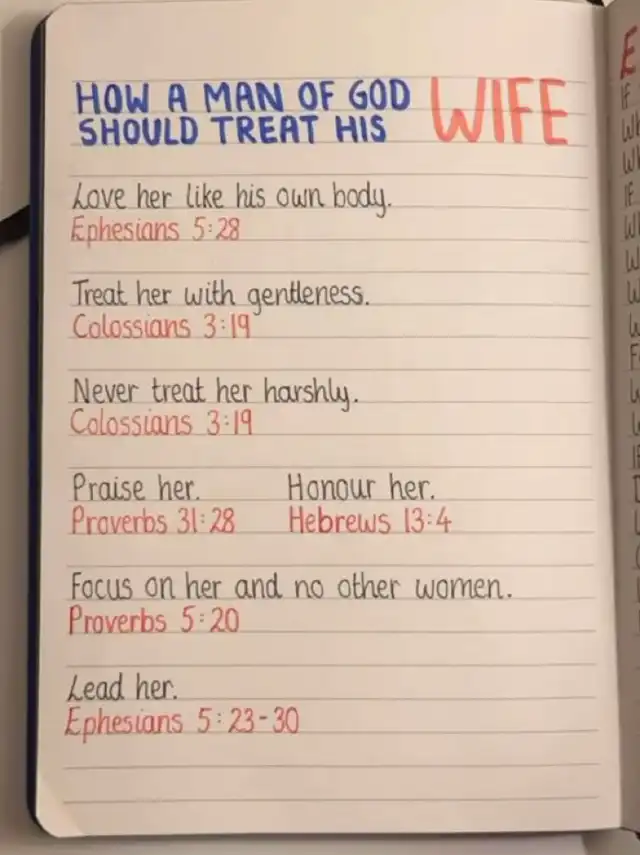 HOW A MAN OF GOD WIFE
SHOULD TREAT HIS
Love her like his own body.
Ephesians 5:28
Treat her with gentleness.
Colossians 3:19
Never treat her harshly.
Colossians 3:19
Praise her. Honour her.
Proverbs 31:28 Hebrews 13:4
Focus on her and no other women.
Proverbs 5:20
Lead her.
Ephesians 5:23-30